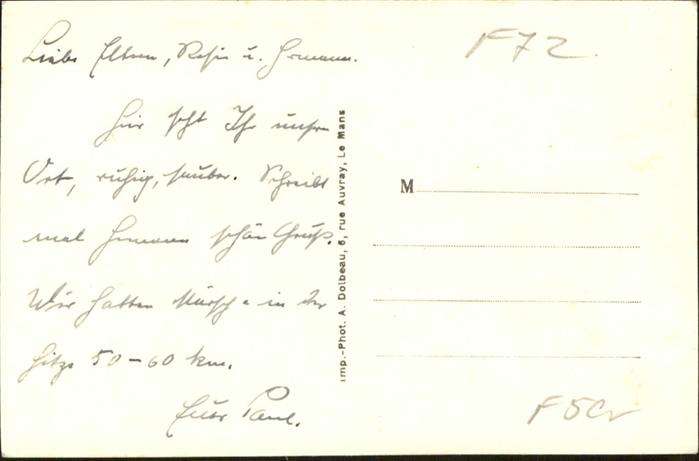 Liebe Eltern, Resi u. Hermann.
Hier seht Ihr unsren
Ort, ruhig, sauber. Schreibt
mal Hermann schön Gruß.
Wir hatten Märsche in der
Hitze 50-60 km.
Euer Paul.
F72
Imp.-Phot. A. Dolbeau, 5, rue Auvray, Le Mans
M